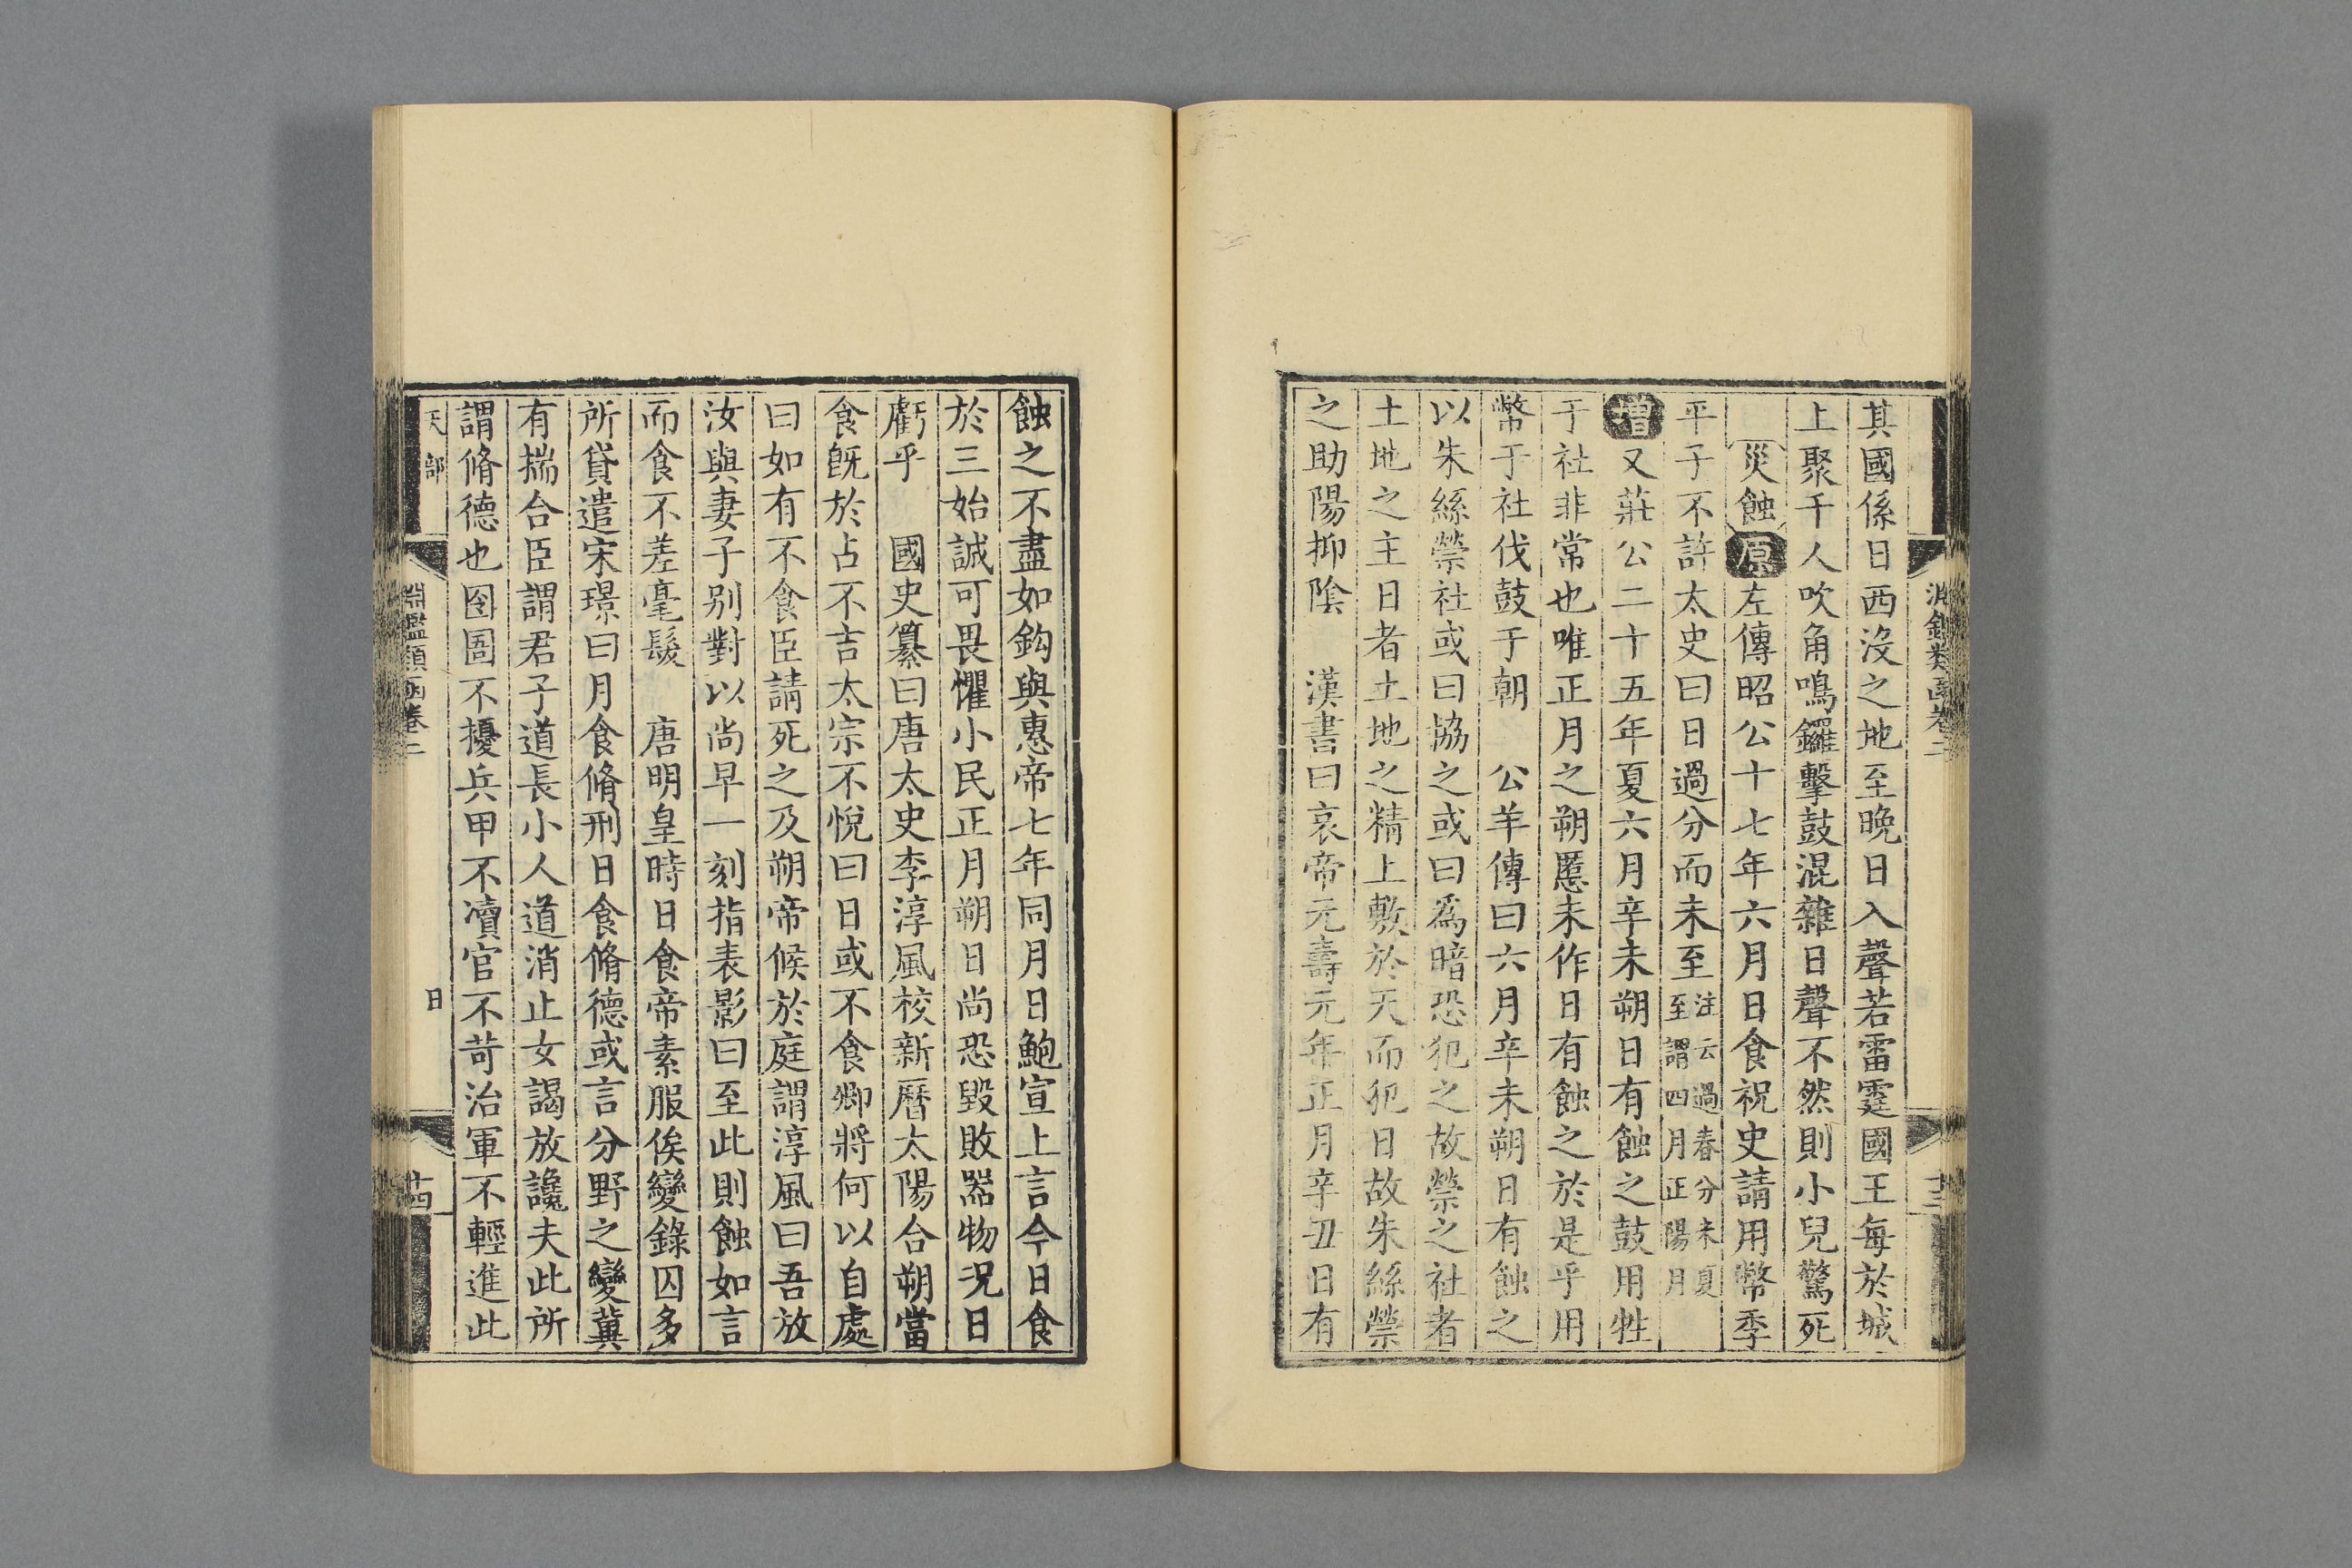 其國係日西沒之地至晚日入聲若雷霆國王每於城
上聚千人吹角鳴鑼擊鼓混雜日聲不然則小兒驚死
災蝕原左傳昭公十七年六月日食祝史請用幣季
平子不許太史曰日過分而未至注云過春分未夏至謂四月正陽月
增又莊公二十五年夏六月辛未朔日有蝕之鼓用牲
于社非常也唯正月之朔慝未作日有蝕之於是乎用
幣于社伐鼓于朝　公羊傳曰六月辛未朔日有蝕之
以朱絲縈社或曰協之或曰爲暗恐犯之故縈之社者
土地之主日者土地之精上敷於天而犯日故朱絲縈
之助陽抑陰　漢書曰哀帝元壽元年正月辛丑日有
蝕之不盡如鈎與惠帝七年同月日鮑宣上言今日食
於三始誠可畏懼小民正月朔日尚恐毀敗噐物況日
虧乎　國史纂曰唐太史李淳風校新曆太陽合朔當
食旣於占不吉太宗不悅曰日或不食卿將何以自處
曰如有不食臣請死之及朔帝候於庭謂淳風曰吾放
汝與妻子别對以尚早一刻指表影曰至此則蝕如言
而食不差毫髮　唐明皇時日食帝素服俟變錄囚多
所貸遣宋璟曰月食脩刑日食脩德或言分野之變冀
有揣合臣謂君子道長小人道消止女謁放讒夫此所
謂脩德也囹圄不擾兵甲不瀆官不苛治軍不輕進此
天部
淵鑑類函卷二
日
十四